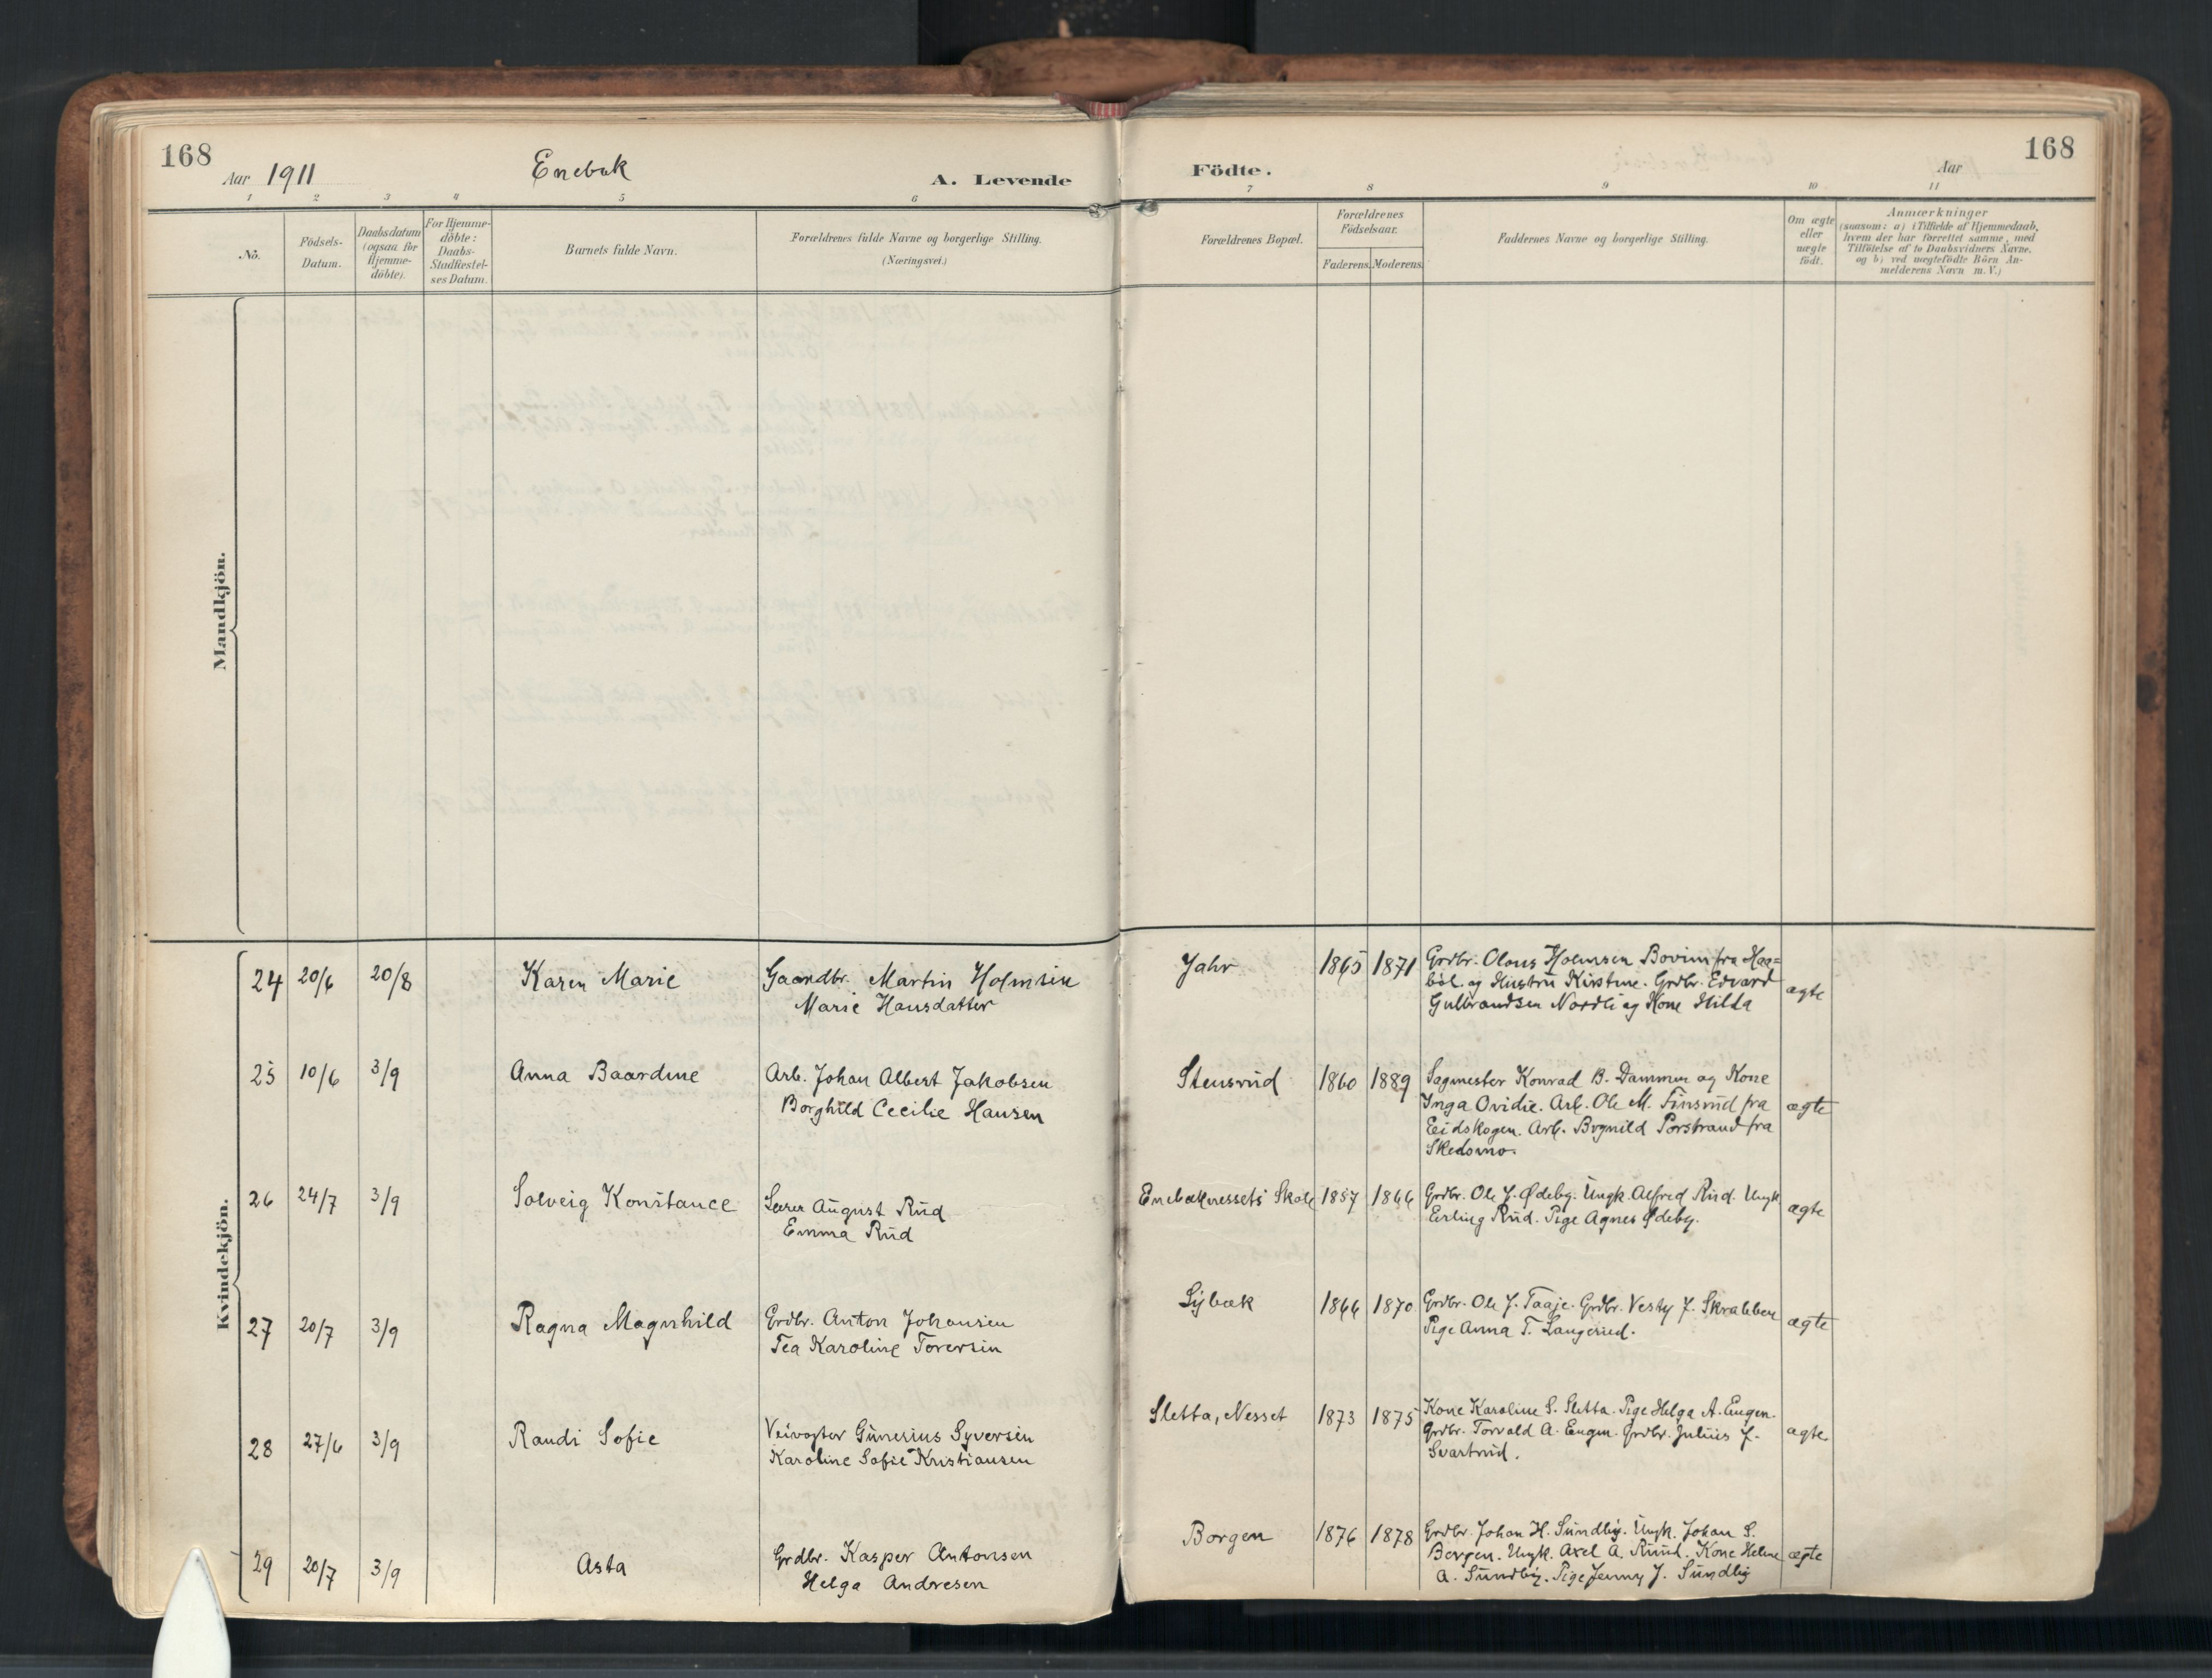 168
Aar 1911
Enebak
A. Levende
Födte.
Aar
168
1 2 3 4 5 6 7 8 9 10 11
No.
Födsels-
Datum.
Daabsdatum
(ogsaa for
Hjemme-
döbte).
For Hjemme-
döbte:
Daabs-
Stadfæstel-
ses Datum.
Barnets fulde Navn.
Forældrenes fulde Navne og borgerlige Stilling.
(Næringsvei.)
Forældrenes Bopæl.
Forældrenes
Födselsaar.
Faderens. Moderens.
Faddernes Navne og borgerlige Stilling.
Om ægte
eller
uægte
födt.
Anmærkninger
(saasom: a) i Tilfælde af Hjemmedaab,
hvem der har forrettet samme, med
Tilföielse af to Daabsvidners Navne.
og b) ved uægtefödte Börn An-
melderens Navn m. V.)
Mandkjön.
Kvindekjön.
24 20/6 20/8 Karen Marie Gaardbr. Martin Holmsen
Marie Hansdatter
Jahr 1865 1871 Grdbr. Olaus Holmsen Bovim fra Haa=
böl. og Hustru Kirstine. Grdbr. Edvard
Gulbrandsen Nordli og Kone Hilda
ægte
25 10/6 3/9 Anna Baardine Arb. Johan Albert Jakobsen
Borghild Cecilie Hansen
Stensrud 1860 1889 Sagmester Konrad B. Dammen og Kone
Inga Ovidie. Arb. Ole M. Finsrud fra
Eidskogen. Arb. Porstrand fra
Skedsmo.
ægte
26 24/7 3/9 Solveig Konstance Lærer August Rud
Emma Rud
Enebaknessets Skole 1857 1866 Grdbr. Ole J. Ødeby. Ungk. Alfred Rud. Ungk
Erling Rud. Pige Agnes Ødeby.
ægte
27 20/7 3/9 Ragna Magnhild Grdbr. Anton Johansen
Tea Karoline Toversen
Sybæk 1866 1870 Grdbr. Ole J. Taaje. Grdbr. Vesty J. Skrabben
Pige Anna T. Langerud.
ægte
28 27/6 3/9 Randi Sofie Veivogter Gunerius Syversen
Karoline Sofie Kristiansen
Sletta, Nesset 1873 1875 Kone Karoline S. Sletta. Pige Helga A. Eugen.
Grdbr. Torvald A. Eugen. Grdbr. Julius J.
Svartrud.
ægte.
29 20/7 3/9 Asta Grdbr. Kasper Antonsen
Helga Andresen
Borgen 1876 1878 Grdbr. Johan H. Sundby. Ungk. Johan S.
Borgen. Ungk. Axel A. Ruud. Kone Helene
A. Sundby. Pige Jenny J. Sundby
ægte